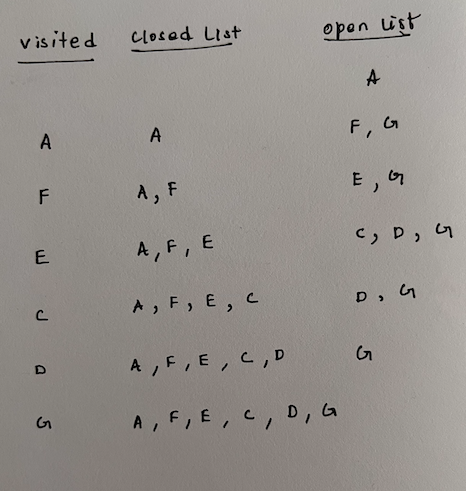 visited closed List open List
A
A A F, G
F A, F E, G
E A, F, E C, D, G
C A, F, E, C D, G
D A, F, E, C, D G
G A, F, E, C, D, G